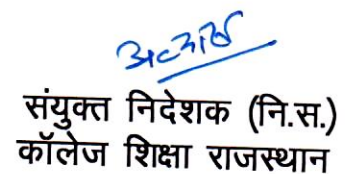 संयुक्त निदेशक (नि.स.)
कॉलेज शिक्षा राजस्थान